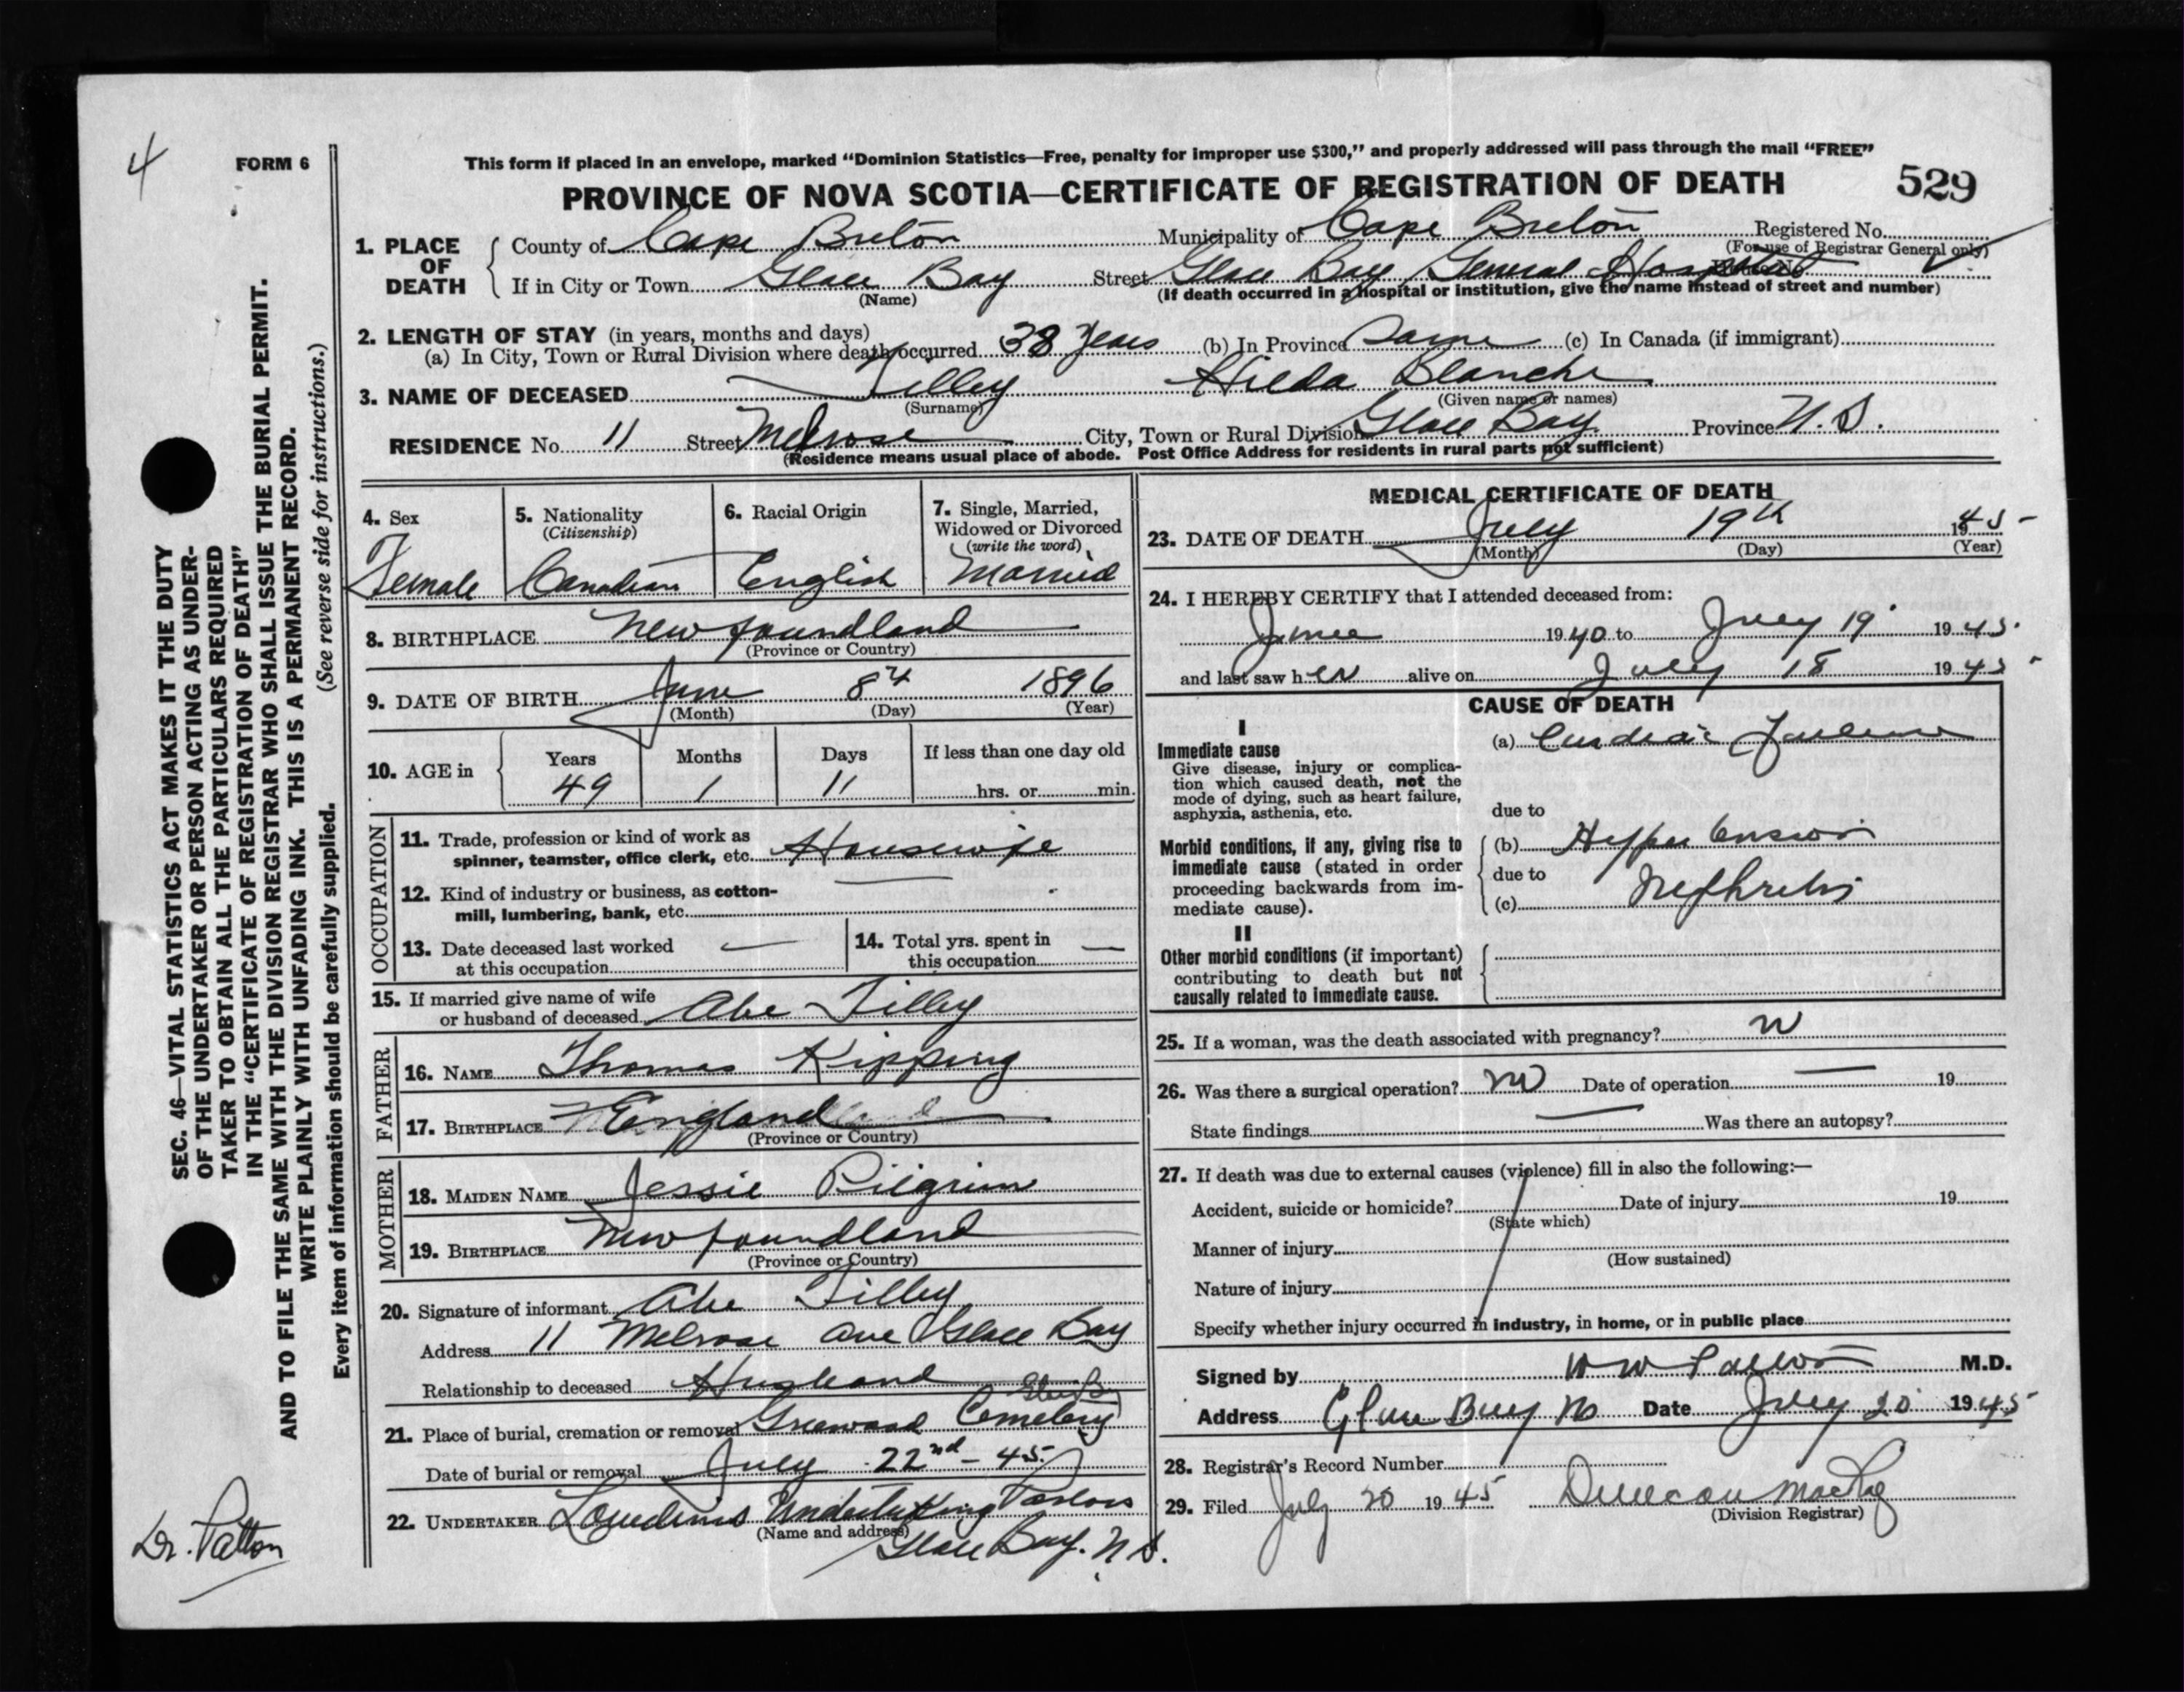 4
FORM 6
This form if placed in an envelope, marked “Dominion Statistics—Free, penalty for improper use $300,” and properly addressed will pass through the mail “FREE”
PROVINCE OF NOVA SCOTIA—CERTIFICATE OF REGISTRATION OF DEATH
529
1. PLACE OF DEATH
County of Cape Breton Municipality of Cape Breton Registered No.
(For use of Registrar General only)
If in City or Town Glace Bay Street Glace Bay General Hospital
(Name) (If death occurred in a hospital or institution, give the name instead of street and number)
2. LENGTH OF STAY (in years, months and days)
(a) In City, Town or Rural Division where death occurred 38 years (b) In Province Same (c) In Canada (if immigrant)
3. NAME OF DECEASED Tilley Hilda Blanche
(Surname) (Given name or names)
RESIDENCE No. 11 Street Melrose City, Town or Rural Division Glace Bay Province N.S.
(Residence means usual place of abode. Post Office Address for residents in rural parts not sufficient)
4. Sex
Female
5. Nationality
(Citizenship)
Canadian
6. Racial Origin
English
7. Single, Married,
Widowed or Divorced
(write the word)
Married
8. BIRTHPLACE Newfoundland
(Province or Country)
9. DATE OF BIRTH June 8th 1896
(Month) (Day) (Year)
10. AGE in
Years Months Days If less than one day old
49 1 11 hrs. or min.
OCCUPATION
11. Trade, profession or kind of work as
spinner, teamster, office clerk, etc. Housewife
12. Kind of industry or business, as cotton-
mill, lumbering, bank, etc. —
13. Date deceased last worked
at this occupation —
14. Total yrs. spent in
this occupation —
15. If married give name of wife
or husband of deceased Abe Tilley
FATHER
16. NAME Thomas Kipping
17. BIRTHPLACE England
(Province or Country)
MOTHER
18. MAIDEN NAME Jessie Pilgrim
19. BIRTHPLACE Newfoundland
(Province or Country)
20. Signature of informant Abe Tilley
Address 11 Melrose Ave Glace Bay
Relationship to deceased Husband
21. Place of burial, cremation or removal Greenwood Cemetery
Date of burial or removal July 22nd - 45.
22. UNDERTAKER Undertaking Parlors
(Name and address)
Glace Bay. N.S.
MEDICAL CERTIFICATE OF DEATH
23. DATE OF DEATH July 19th 1945
(Month) (Day) (Year)
24. I HEREBY CERTIFY that I attended deceased from:
June 1940 to July 19 1945
and last saw her alive on July 18 1945
CAUSE OF DEATH
I
Immediate cause
Give disease, injury or complica-
tion which caused death, not the
mode of dying, such as heart failure,
asphyxia, asthenia, etc.
(a) Cardiac Failure
due to
Morbid conditions, if any, giving rise to
immediate cause (stated in order
proceeding backwards from im-
mediate cause).
(b) Hypertension
due to
(c) Nephritis
II
Other morbid conditions (if important)
contributing to death but not
causally related to immediate cause.
25. If a woman, was the death associated with pregnancy?
26. Was there a surgical operation? no Date of operation — 19
State findings — Was there an autopsy?
27. If death was due to external causes (violence) fill in also the following:—
Accident, suicide or homicide? Date of injury 19
(State which)
Manner of injury
(How sustained)
Nature of injury
Specify whether injury occurred in industry, in home, or in public place
Signed by Patton M.D.
Address Glace Bay NS Date July 20 1945
28. Registrar's Record Number
29. Filed July 20 1945 Duncan MacRae
(Division Registrar)
SEC. 46—VITAL STATISTICS ACT MAKES IT THE DUTY
OF THE UNDERTAKER OR PERSON ACTING AS UNDER-
TAKER TO OBTAIN ALL THE PARTICULARS REQUIRED
IN THE “CERTIFICATE OF REGISTRATION OF DEATH”
AND TO FILE THE SAME WITH THE DIVISION REGISTRAR WHO SHALL ISSUE THE BURIAL PERMIT.
WRITE PLAINLY WITH UNFADING INK. THIS IS A PERMANENT RECORD.
Every item of information should be carefully supplied. (See reverse side for instructions.)
Dr. Patton